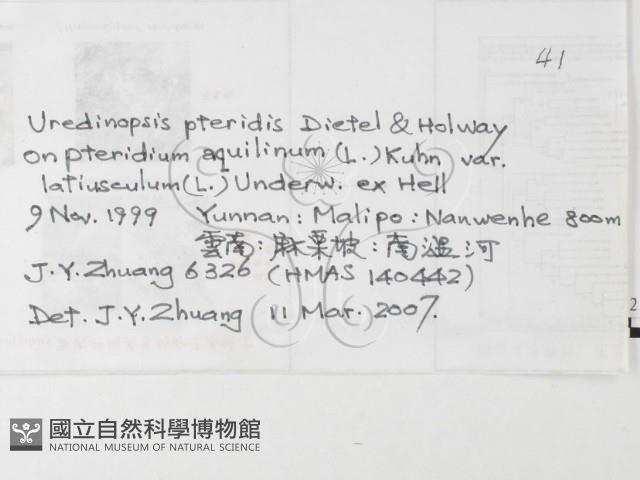 41
Uredinopsis pteridis Dietel & Holway
on pteridium aquilinum (L.) Kuhn var.
latiusculum (L.) Underw. ex Hell
9 Nov. 1999 Yunnan: Malipo: Nanwenhe 800m
雲南: 麻栗坡: 南溫河
J.Y. Zhuang 6326 (HMAS 140442)
Det. J.Y. Zhuang 11 Mar. 2007.
2
國立自然科學博物館
NATIONAL MUSEUM OF NATURAL SCIENCE